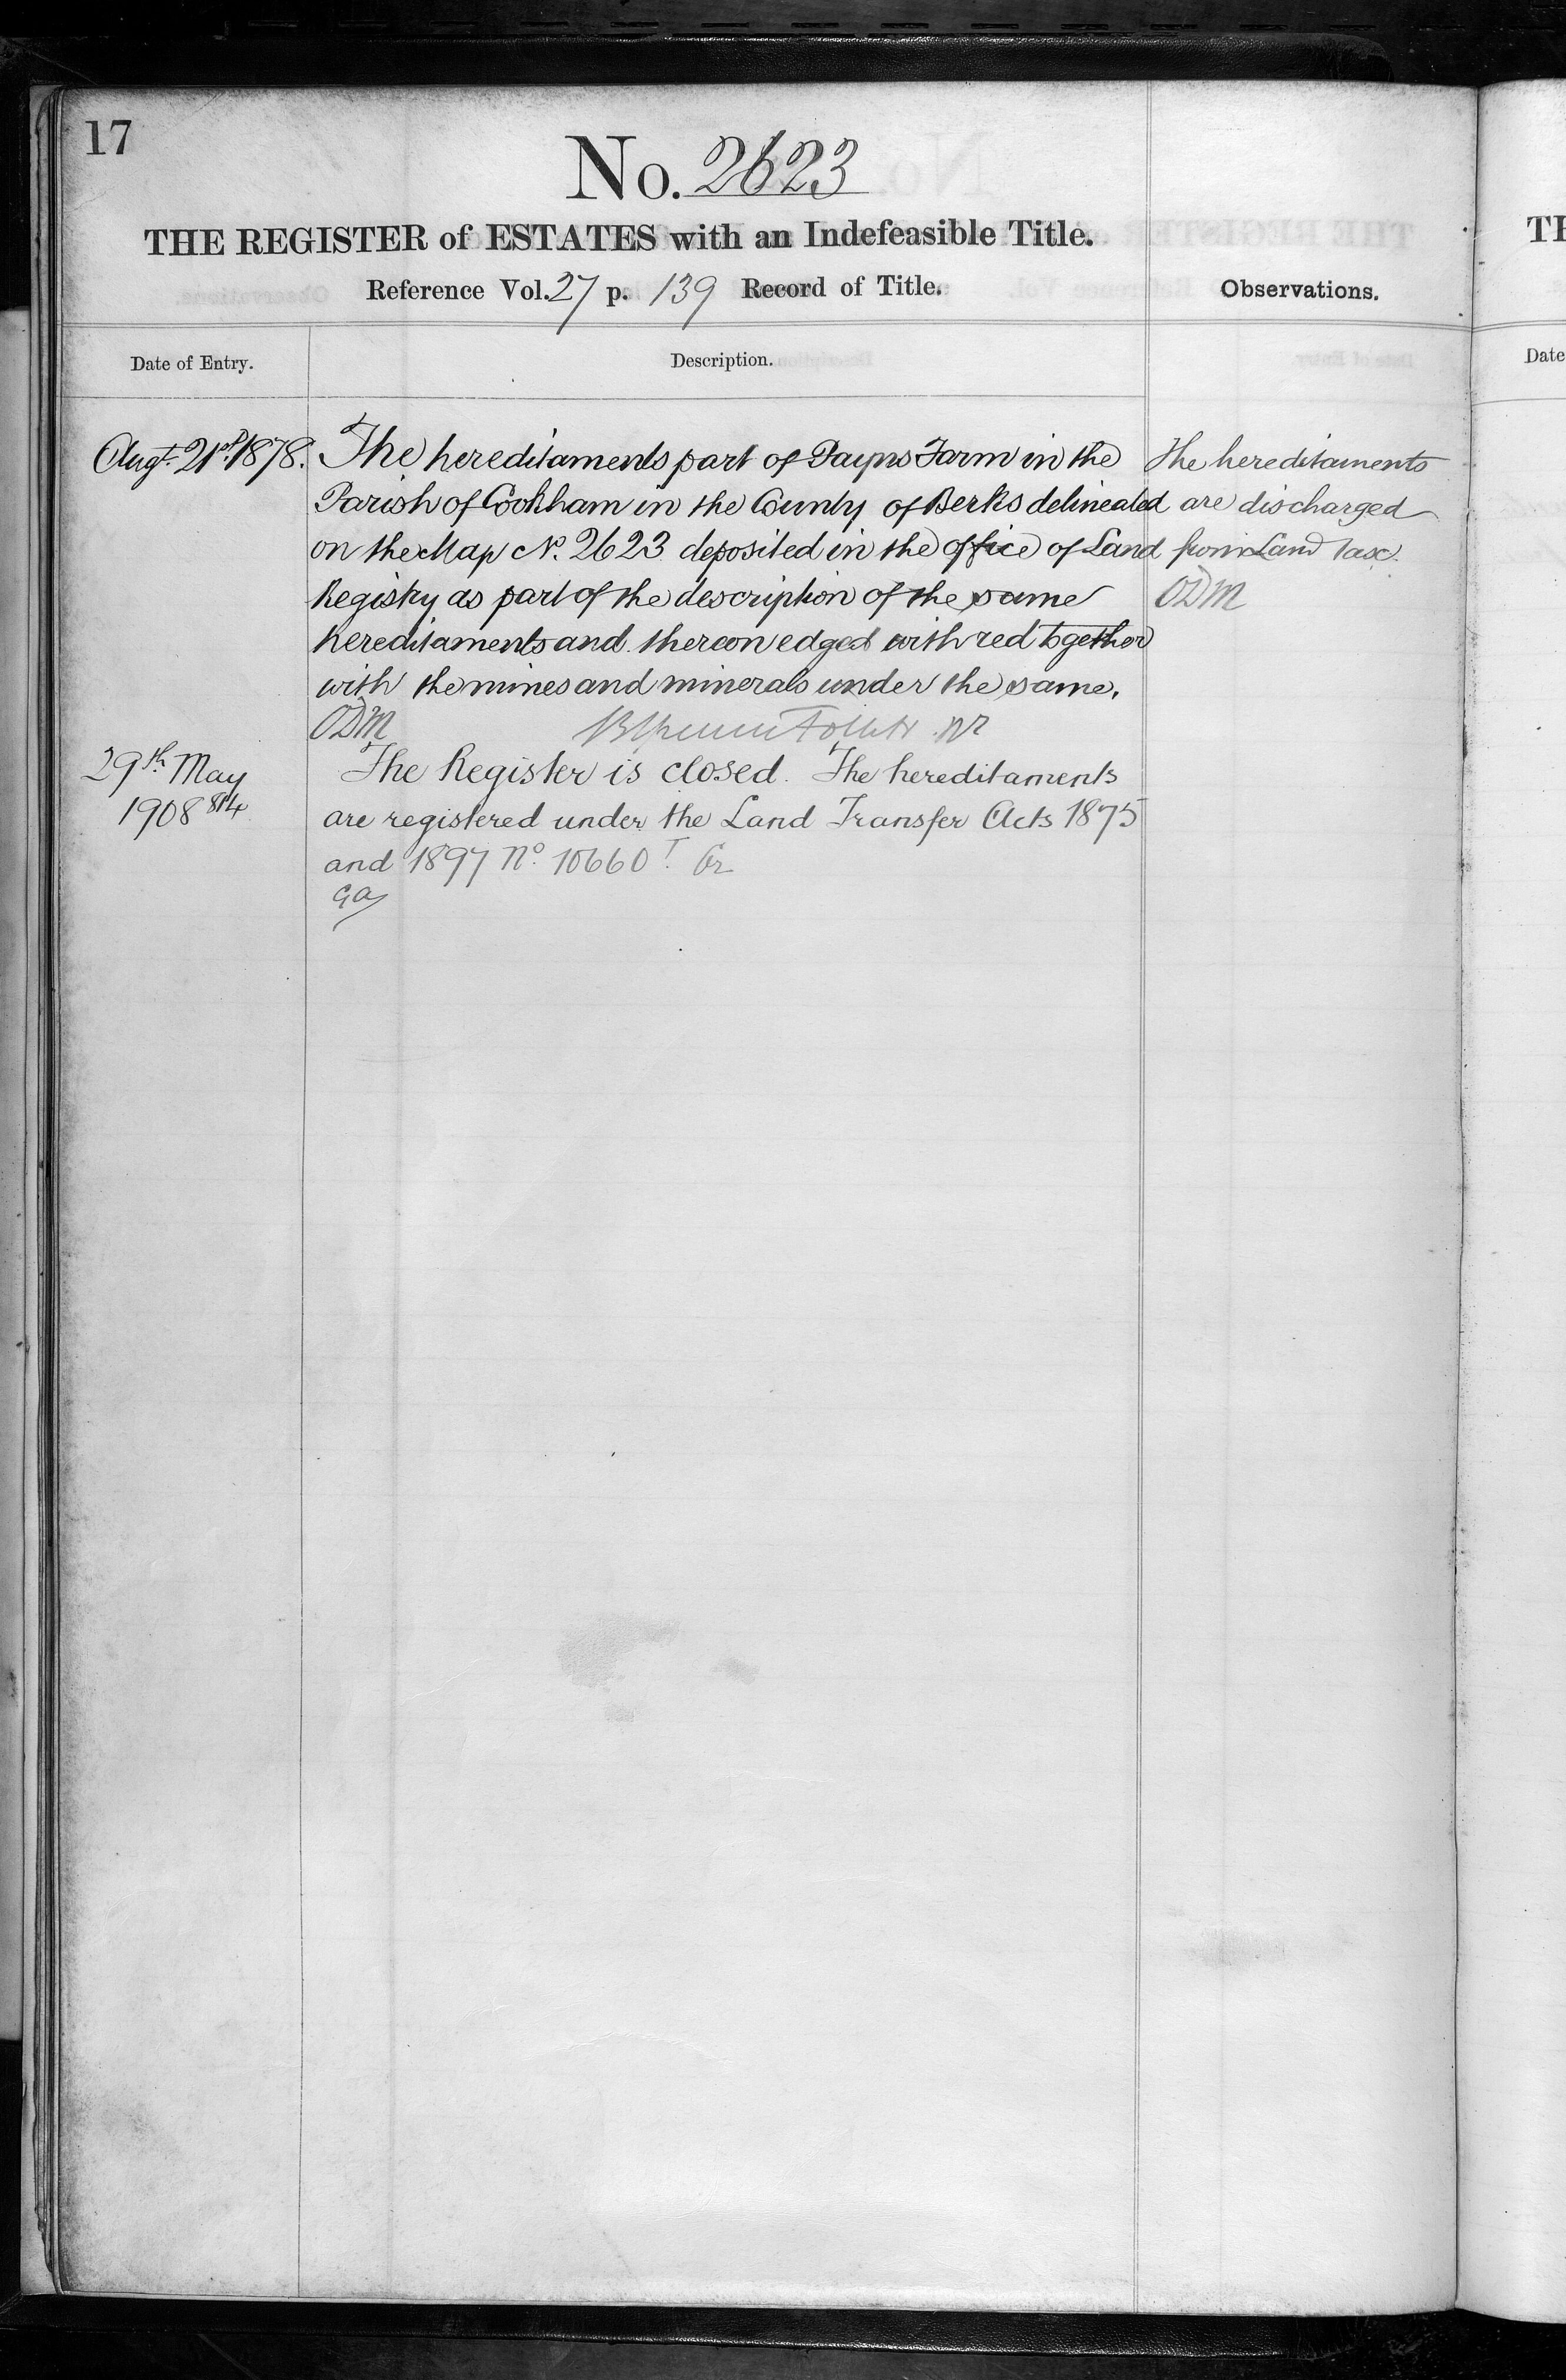 17
No. 2623
THE REGISTER of ESTATES with an Indefeasible Title.
Reference Vol. 27 p. 139 Record of Title.
Observations.
Date of Entry.
Description.
Augt. 21st. 1878.
The hereditaments part of Payns Farm in the
Parish of Cookham in the County of Berks delineated
on the Map No. 2623 deposited in the office of Land
Registry as part of the description of the same
hereditaments and thereon edged with red together
with the mines and minerals under the same.
ODM
The hereditaments
are discharged
from Land Tax.
ODM
29th May
1908
The Register is closed. The hereditaments
are registered under the Land Transfer Acts 1875
and 1897 No. 10660
TH
Date